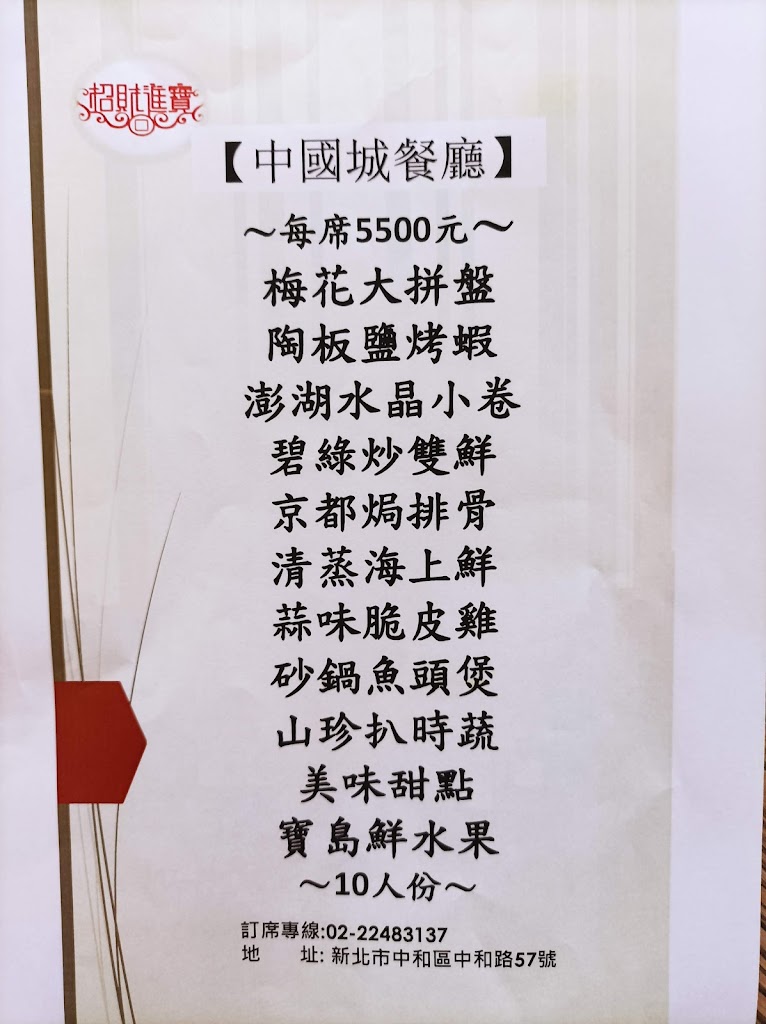 招財進寶
【中國城餐廳】
～每席5500元～
梅花大拼盤
陶板鹽烤蝦
澎湖水晶小卷
碧綠炒雙鮮
京都焗排骨
清蒸海上鮮
蒜味脆皮雞
砂鍋魚頭煲
山珍扒時蔬
美味甜點
寶島鮮水果
～10人份～
訂席專線:02-22483137
地　　址: 新北市中和區中和路57號